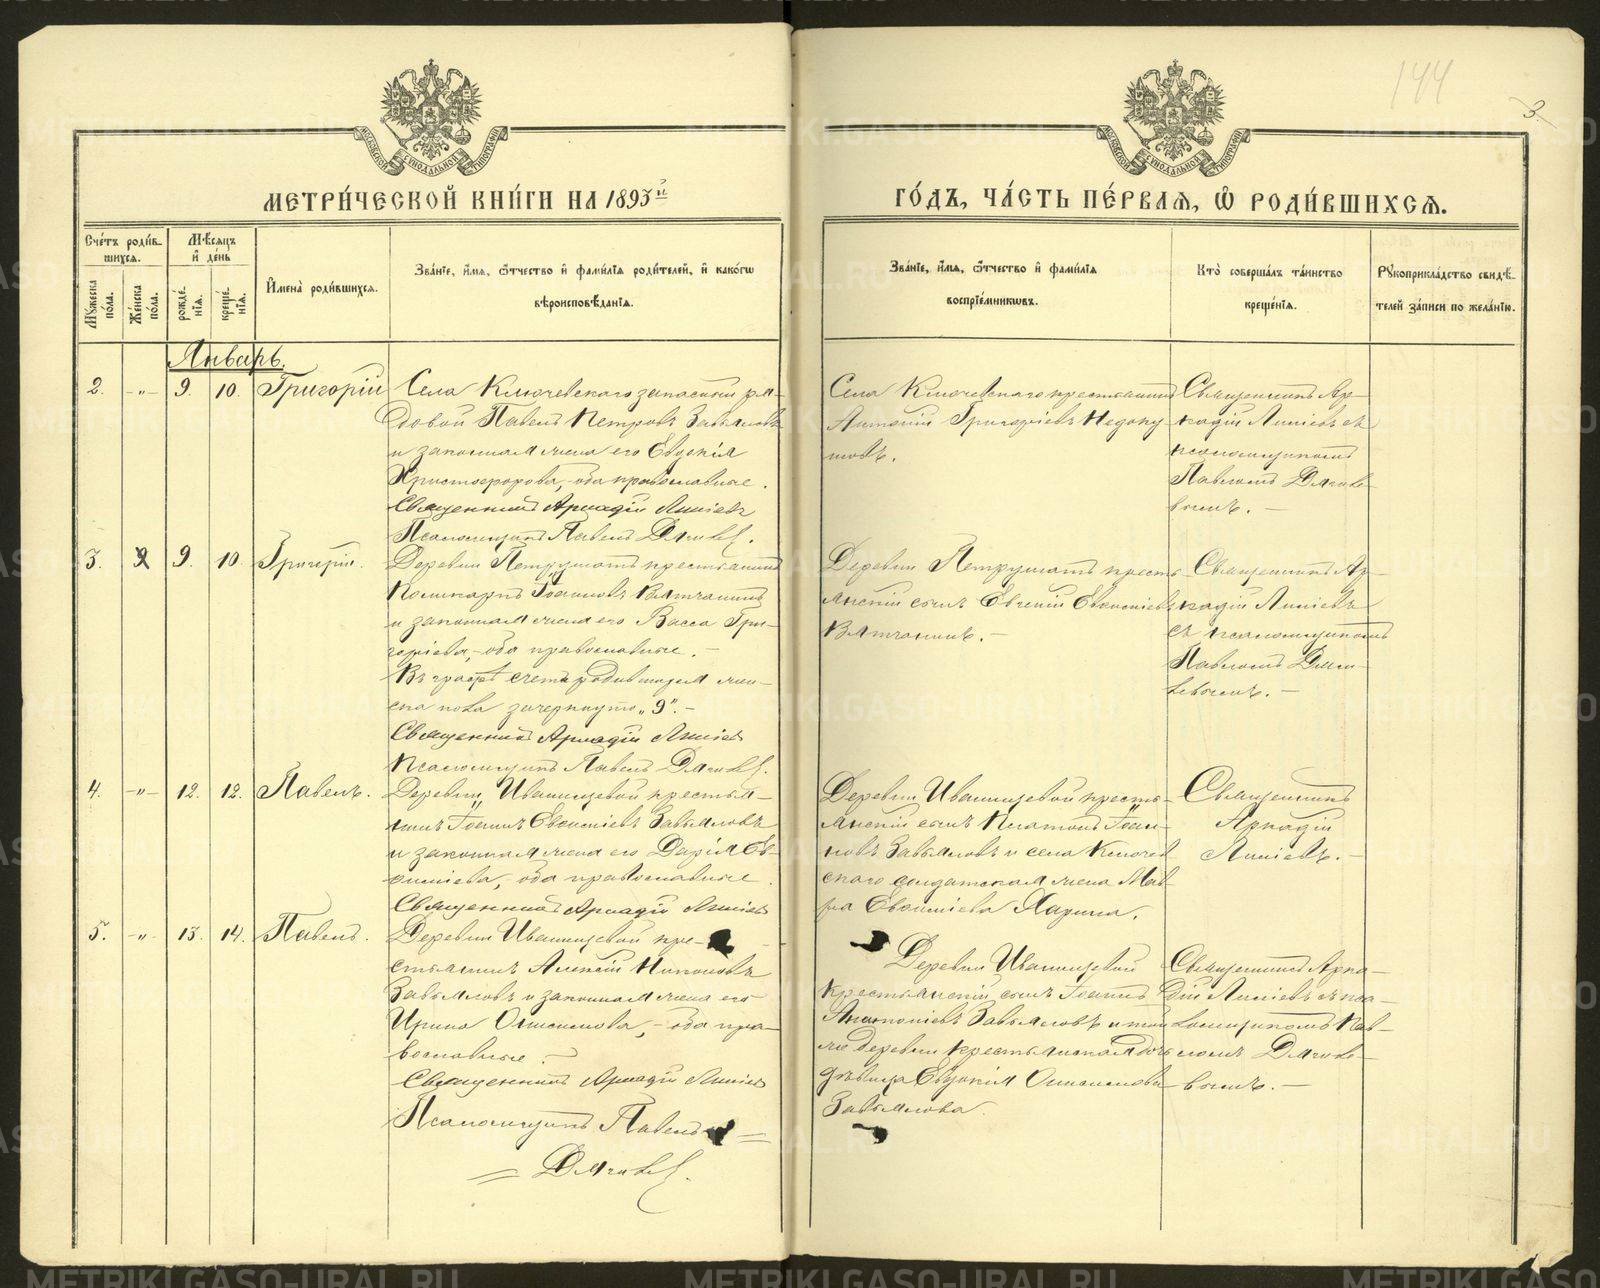 144
3.
МЕТРИ́ЧЕСКОЙ КНИ́ГИ НА 1893й
ГО́ДЪ, ЧА́СТЬ ПЕ́РВАЯ, Ѡ РОДИ́ВШИХСЯ.
Сче́тъ роди́в-
шихся.
Мѣ́сяцъ
и де́нь
Му́жеска пола.
Же́нска пола.
рожде́-
нія.
креще́-
нія.
Имена̀ роди́вшихся.
Зва́ніе, и́мя, ѻ́тчество и фами́лія роди́телей, и како́гѡ
вѣроисповѣ́данія.
Зва́ніе, и́мя, ѻ́тчество и фами́лія
воспріе́мникѡвъ.
Кто̀ соверша́лъ та́инство
креще́нія.
Рꙋкоприкла́дство свидѣ́-
телей за́писи по жела́нію.
Январь.
2. -„- 9. 10. Григорій
Села Ключевскаго запасный ря-
довой Павелъ Петровъ Завьяловъ
и законная жена его Евдокія
Христофорова, оба православные.
Священникъ Аркадій Линіевъ
Псаломщикъ Павелъ Дягилевъ.
Села Ключевскаго крестьянинъ
Антоній Григоріевъ Недоку
шевъ.
Священникъ Ар-
кадій Линіевъ съ
псаломщикомъ
Павломъ Дягиле-
вымъ. -
3. 9. 10. Григорій.
Деревни Петрушатъ крестьянинъ
Поликарпъ Іоанновъ Вятчанинъ
и законная жена его Васса Гри-
горіева, - оба православные. -
Въ графѣ счета родившихся жен-
ска пола зачеркнуто „9". -
Священникъ Аркадій Линіевъ
Псаломщикъ Павелъ Дягилевъ.
Деревни Петрушатъ кресть-
янскій сынъ Евгеній
Вятчанинъ. -
Священникъ Ар-
кадій Линіевъ
съ псаломщикомъ
Павломъ Дяги-
левымъ. -
4. -„- 12. 12. Павелъ.
Деревни Иванищевой крестья-
нинъ Іоаннъ Завьяловъ
и законная жена его Дарія
оба православные.
Священникъ Аркадій Линіевъ
Деревни Иванищевой кресть-
янскій сынъ Платонъ Іоан-
новъ Завьяловъ и села Ключев
скаго солдатская жена Мав
ра Ларина.
Священникъ
Аркадій
Линіевъ. -
5. -„- 13. 14. Павелъ.
Деревни Иванищевой кре-
стьянинъ Алексій Никоновъ
Завьяловъ и законная жена его
Ирина - оба пра-
вославные. -
Священникъ Аркадій Линіевъ
Псаломщикъ Павелъ =
= Дягилевъ.
Деревни Иванищевой
крестьянскій сынъ Іоаннъ
Завьяловъ и той
же деревни крестьянская дочь
дѣвица Евдокія
Завьялова.
Священникъ Арка-
дій Линіевъ съ пса-
ломщикомъ Пав-
ломъ Дягиле-
вымъ. -
METRIKI.GASO-URAL.RU